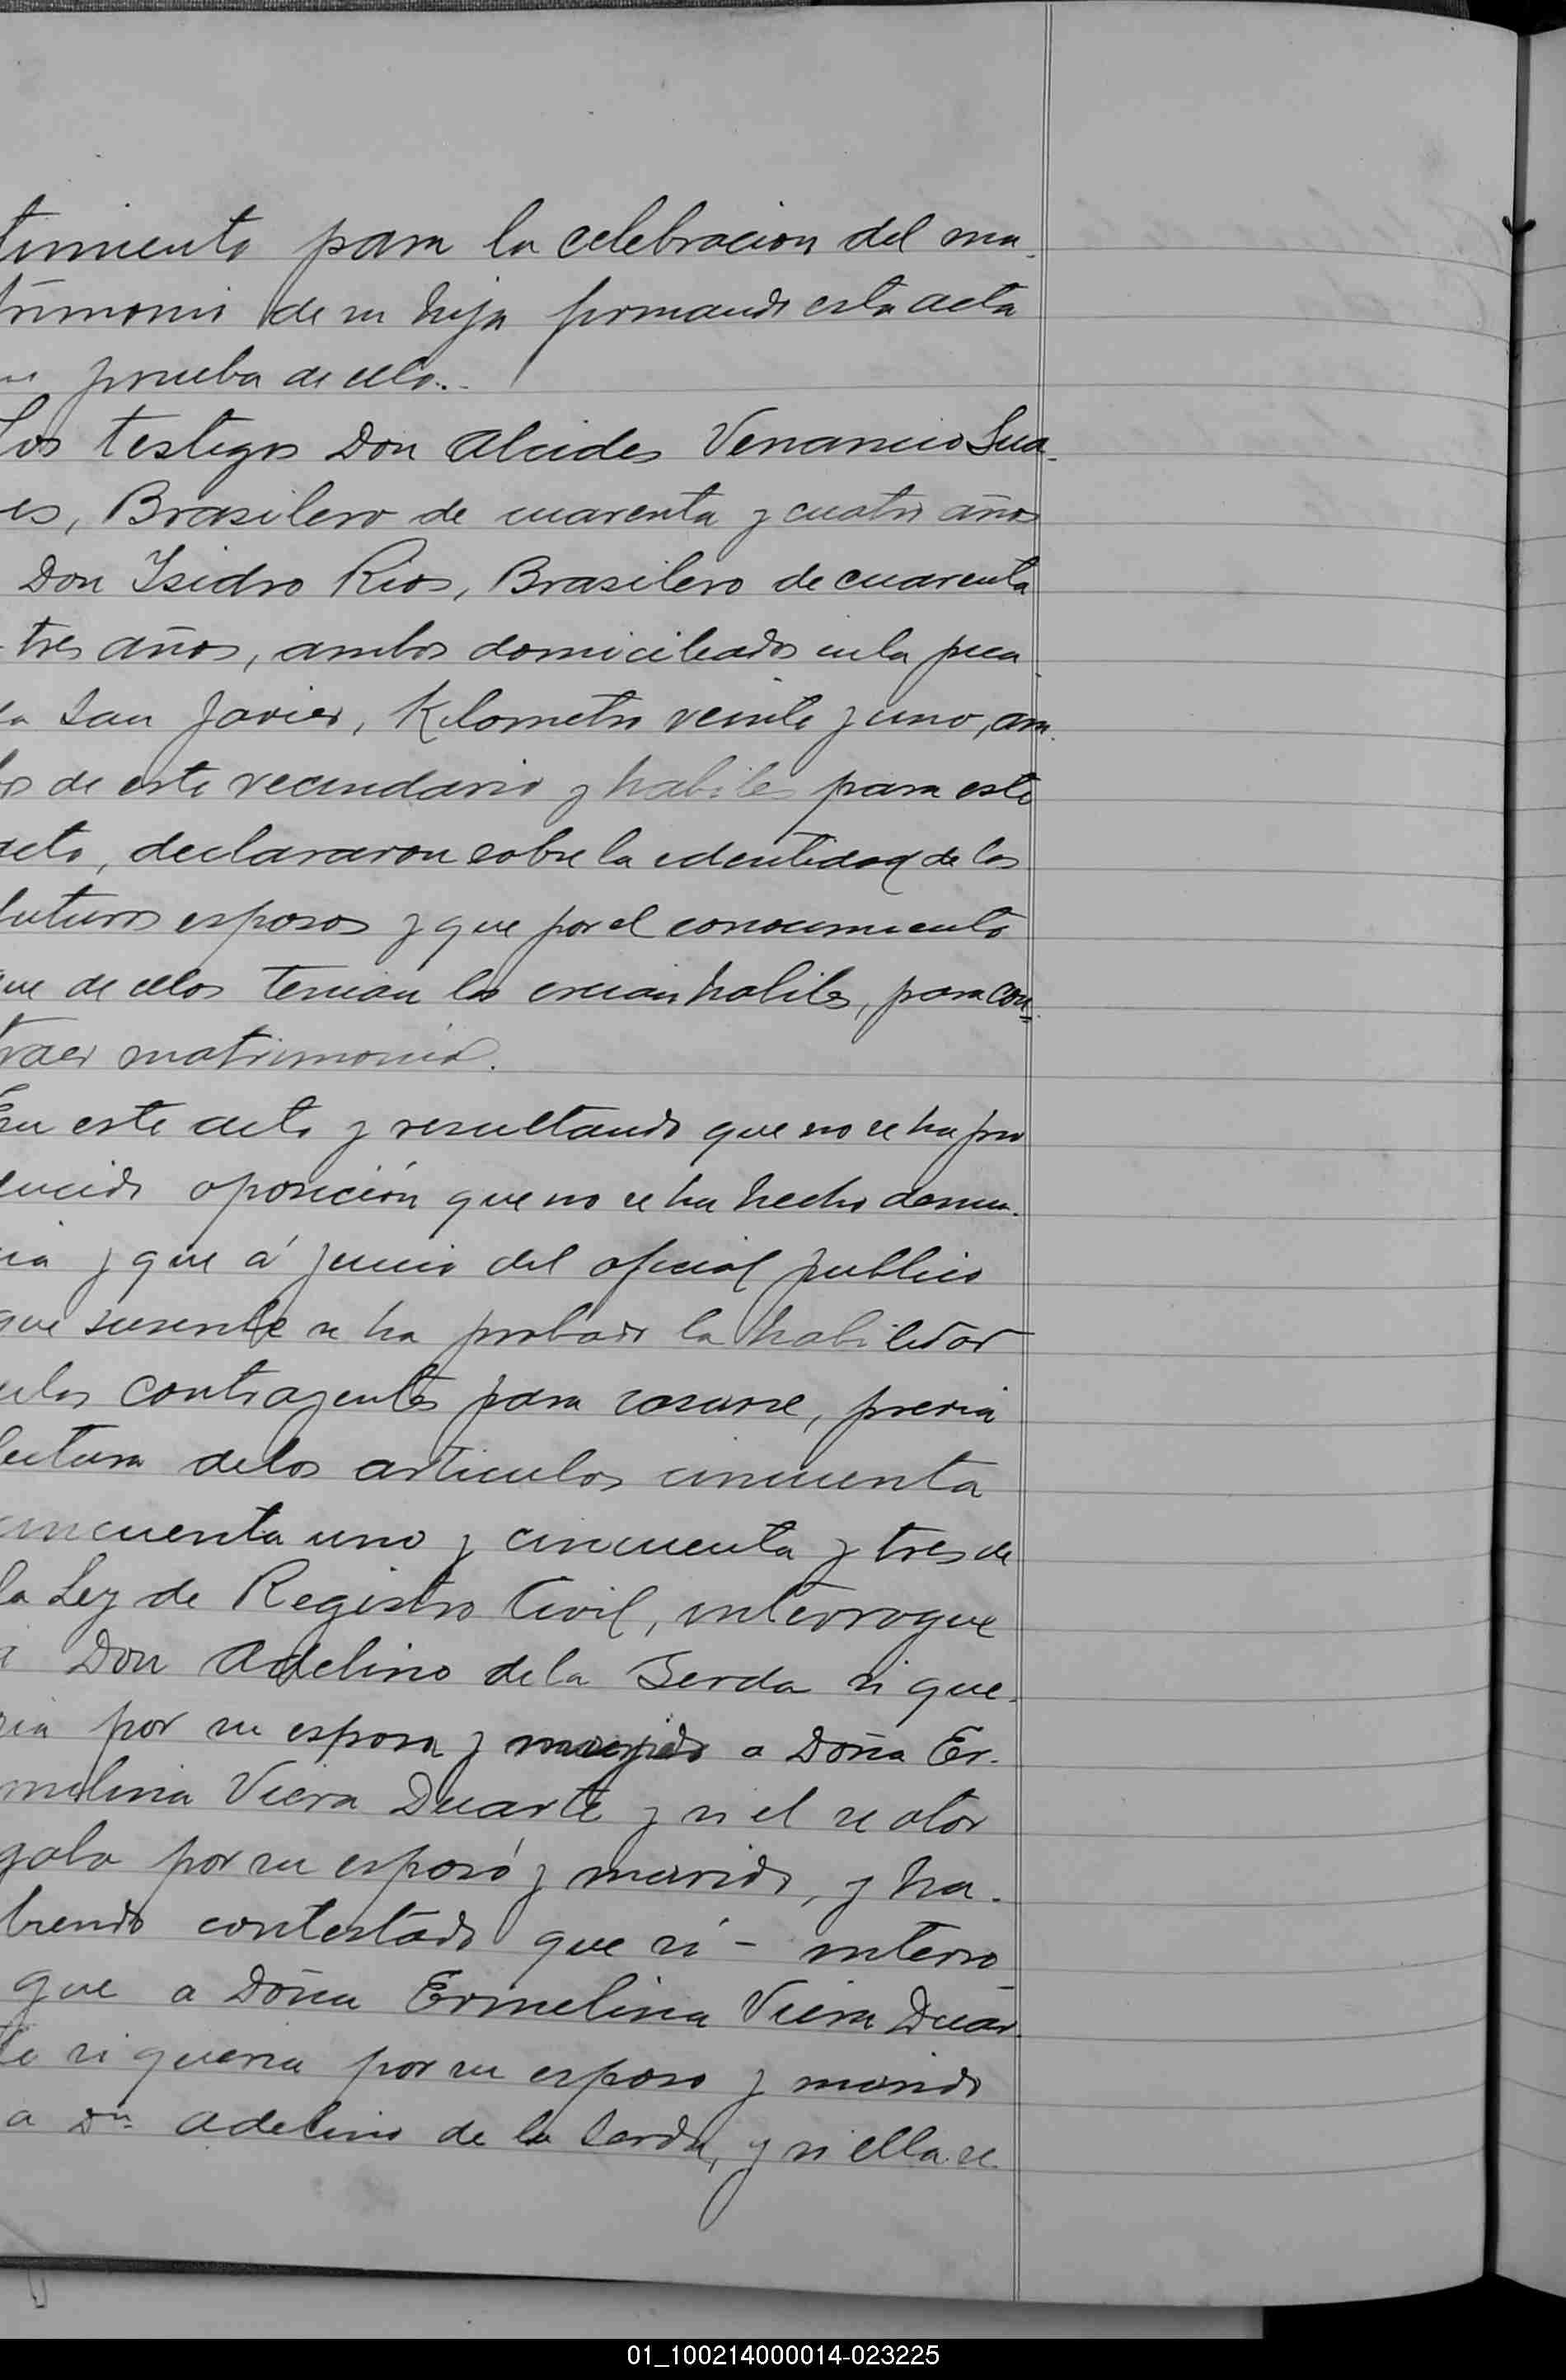 timiento para la celebracion del ma-
trimonio de su hija firmando esta acta
prueba de ello.-
Los testigos Don Alcides Venancio Sua-
es, Brasilero de cuarenta y cuatro años
Don Isidro Rios, Brasilero de cuarenta
tres años, ambos domiciliados en la pica
da San Javier, Kilometro veinte y uno, am-
bos de este vecindario y habiles para este
acto, declararon sobre la identidad de los
futuros esposos y que por el conocimiento
que de ellos tenian los creian habiles, para con-
traer matrimonio.
En este acto y resultando que no se ha pro
ducido oposición que no se ha hecho denun-
cia y que á juicio del oficial publico
que suscribe se ha probado la habilidad
de los contrayentes para casarse, previa
lectura de los articulos cincuenta
cincuenta uno y cincuenta y tres de
la Ley de Registro Civil, interrogue
a Don Adelino de la Serda si que-
ria por su esposa y a Doña Er-
melina Viera Duarte y si el se otor
gaba por su esposó y marido, y ha-
biendo contestado que sí - interro
gue a Doña Ermelina Viera Duar-
te si queria por su esposo y marido
a Dn Adelino de la Serda, y si ella se
01_100214000014-023225